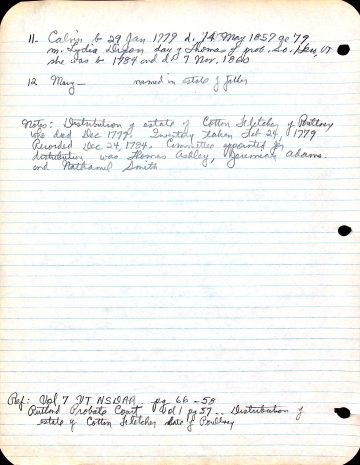 11. Calvin b 29 Jan 1779 d. 14 May 1857 ae 79
m. Lydia Dixon day of Thomas of prob. So. Hero, VT
she was b 1784 and d. 7 Nov. 1860
12 Mary — named in estate of father
Notes: Distribution of estate of Cotton Fletcher of Poultney
who died Dec 1777. Inventory taken Feb 24, 1779
Recorded Dec 24, 1784. Committee appointed for
distribution was Thomas Ashley, Jeremiah Adams
and Nathaniel Smith
Ref: Vol 7 VT NSDAR pg 66-58
Rutland Probate Court Vol 1 pg 57 -- Distribution of
estate of Cotton Fletcher late of Poultney